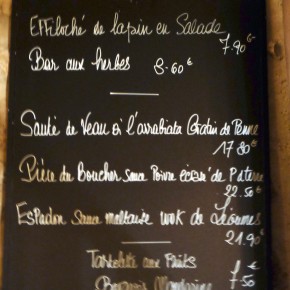 Effiloché de lapin en Salade
7.90€
Bar aux herbes 8.60€
Sauté de Veau à l'arrabiata Gratin de Penne
17.80€
Pièce du Boucher sauce Poivre écrasé de P de terre
22.50€
Espadon Sauce maltaise wok de Légumes
21.90€
Tartelette aux Fruits 7 €
Mandarine 7.50